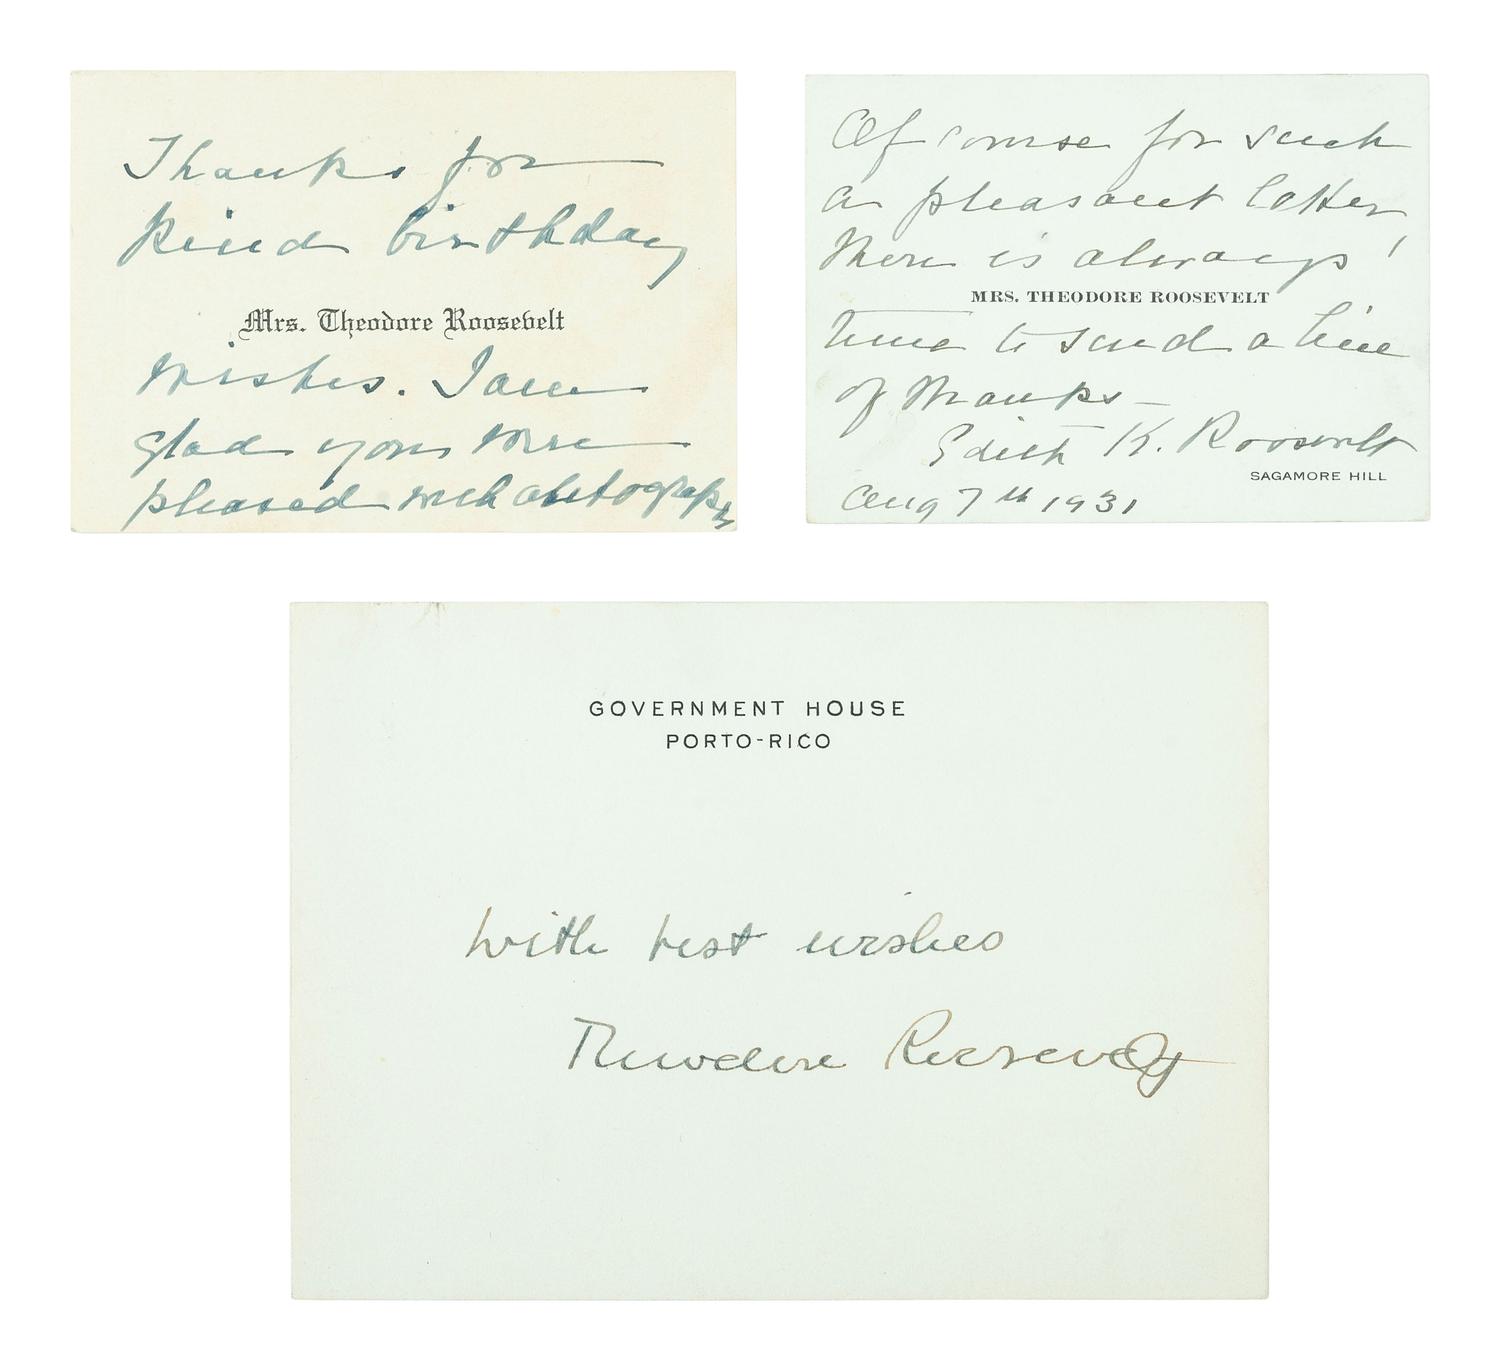 Thanks for
kind birthday
Mrs. Theodore Roosevelt
wishes. I am
glad you were
pleased with autograph
Of course for such
a pleasant letter
there is always
MRS. THEODORE ROOSEVELT
time to send a line
of thanks –
Edith K. Roosevelt
SAGAMORE HILL
Aug 7th 1931
GOVERNMENT HOUSE
PORTO-RICO
With best wishes
Theodore Roosevelt